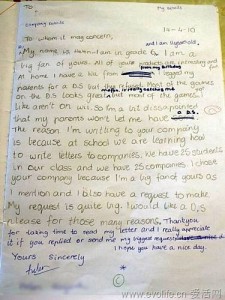 To My details
Company Details 14-4-10
To whom it may concern,
My name is and I am in grade 6. I am a
big fan of yours. All of your
At home I have a Wii from I begged my
parents for a DS but they refused. Most of the games
on the DS looks great but most of the games
like aren't on Wii. So I'm a bit dissapointed
that my parents won't let me have a DS.
The reason I'm writing to your company
is because at school we are learning how
to write letters to companies. We have 25 students
in our class and we have 25 companies. I chose
your company because I'm a big fan of yours as
I mention and I also have a request to make
My request is quite big. I would like a DS
please for those many reasons. Thankyou
for taking time to read my letter and I really appreciate
it if you replied or send me my biggest request
I hope you have a nice day.
Yours Sincerely
www.evolife.cn